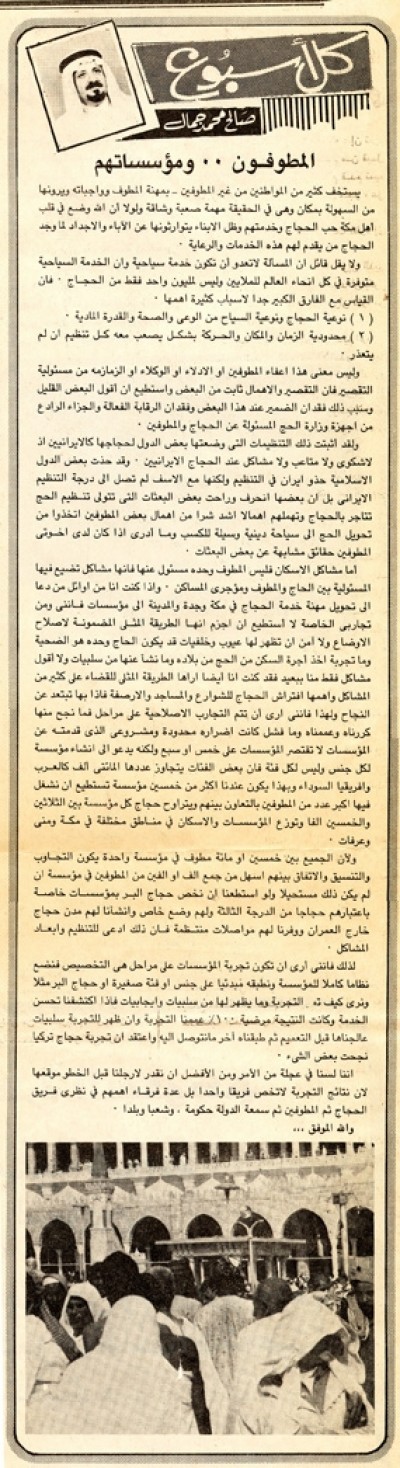 كل أسبوع
صالح محمد جمال
المطوفون ٠٠ ومؤسساتهم
يستخف كثير من المواطنين من غير المطوفين ـ بمهنة المطوف وواجباته ويرونها
من السهولة بمكان وهى في الحقيقة مهمة صعبة وشاقة ولولا أن الله وضع في قلب
أهل مكة حب الحجاج وخدمتهم وظل الابناء يتوارثونها عن الآباء والاجداد لما وجد
الحجاج من يقدم لهم هذه الخدمات والرعاية ٠
ولا يقل قائل ان المسألة لاتعدو أن تكون خدمة سياحية وان الخدمة السياحية
متوفرة في كل انحاء العالم للملايين وليس لمليون واحد فقط من الحجاج ٠ فان
القياس مع الفارق الكبير جدا لاسباب كثيرة اهمها ٠
( ١ ) نوعية الحجاج ونوعية السياح من الوعى والصحة والقدرة المادية ٠
( ٢ ) محدودية الزمان والمكان والحركة بشكل يصعب معه كل تنظيم ان لم
يتعذر ٠
وليس معنى هذا اعفاء المطوفين او الادلاء او الوكلاء او الزمازمه من مسئولية
التقصير فان التقصير والاهمال ثابت من البعض واستطيع ان اقول البعض القليل
وسبب ذلك فقدان الضمير عند هذا البعض وفقدان الرقابة الفعالة والجزاء الرادع
من اجهزة وزارة الحج المسئولة عن الحجاج والمطوفين ٠
ولقد أثبتت ذلك التنظيمات التى وضعتها بعض الدول لحجاجها كالايرانيين اذ
لاشكوى ولا متاعب ولا مشاكل عند الحجاج الايرانيين ٠ وقد حذت بعض الدول
الاسلامية حذو ايران في التنظيم ولكنها مع الاسف لم تصل الى درجة التنظيم
الايرانى بل ان بعضها انحرف وراحت بعض البعثات التى تتولى تنظيم الحج
تتاجر بالحجاج وتهملهم اهمالا اشد شرا من اهمال بعض المطوفين اتخذوا من
تحويل الحج الى سياحة دينية وسيلة للكسب وما أدرى اذا كان لدى اخوتى
المطوفين حقائق مشابهة عن بعض البعثات ٠
أما مشاكل الاسكان فليس المطوف وحده مسئول عنها فانها مشاكل تضيع فيها
المسئولية بين الحاج والمطوف ومؤجرى المساكن ٠ واذا كنت انا من اوائل من دعا
الى تحويل مهنة خدمة الحجاج في مكة وجدة والمدينة الى مؤسسات فاننى ومن
تجاربى الخاصة لا أستطيع ان اجزم انها الطريقة المثلى المضمونة لاصلاح
الاوضاع ولا آمن ان تظهر لها عيوب وخلفيات قد يكون الحاج وحده هو الضحية
وما تجربة اخذ أجرة السكن من الحج من بلاده وما نشأ عنها من سلبيات ولا أقول
مشاكل فقط منا ببعيد فقد كنت انا أيضا أراها الطريقة المثلى للقضاء على كثير من
المشاكل واهمها افتراش الحجاج للشوارع والمساجد والارصفة فاذا بها تبتعد عن
النجاح ولهذا فاننى ارى أن تتم التجارب الاصلاحية على مراحل فما نجح منها
كررناه وعممناه وما فشل كانت اضراره محدودة ومشروعى الذى قدمته عن
المؤسسات لا تقتصر المؤسسات على خمس او سبع ولكنه يدعو الى انشاء مؤسسة
لكل جنس وليس لكل فئة فان بعض الفئات يتجاوز عددها المائتى ألف كالعرب
وافريقيا السوداء وبهذا يكون عندنا اكثر من خمسين مؤسسة تستطيع ان نشغل
فيها اكبر عدد من المطوفين بالتعاون بينهم ويتراوح حجاج كل مؤسسة بين الثلاثين
والخمسين الفا وتوزع المؤسسات والاسكان في مناطق مختلفة في مكة ومنى
وعرفات ٠
ولأن الجميع بين خمسين او مائة مطوف في مؤسسة واحدة يكون التجاوب
والتنسيق والاتفاق بينهم اسهل من جمع الف او الفين من المطوفين في مؤسسة ان
لم يكن ذلك مستحيلا ولو استطعنا ان نخص حجاج البر بمؤسسات خاصة
باعتبارهم حجاجا من الدرجة الثالثة ولهم وضع خاص وانشأنا لهم مدن حجاج
خارج العمران ووفرنا لهم مواصلات منتظمة فان ذلك ادعى للتنظيم وابعاد
المشاكل ٠
لذلك فاننى أرى ان تكون تجربة المؤسسات على مراحل هى التخصيص فنضع
نظاما كاملا للمؤسسة ونطبقه مبدئيا على جنس او فئة صغيرة او حجاج البر مثلا
ونرى كيف ته التجربة وما يظهر لها من سلبيات وايجابيات فاذا اكتشفنا تحسن
الخدمة وكانت النتيجة مرضية ١٠٠٪ عممنا التجربة وان ظهر للتجربة سلبيات
عالجناها قبل التعميم ثم طبقناه أخر مانتوصل اليه واعتقد ان تجربة حجاج تركيا
نجحت بعض الشىء ٠
اننا لسنا في عجلة من الأمر ومن الأفضل ان نقدر لارجلنا قبل الخطو موقعها
لان نتائج التجربة لاتخص فريقا واحدا بل عدة فرقاء اهمهم في نظرى فريق
الحجاج ثم المطوفين ثم سمعة الدولة حكومة ، وشعبا وبلدا ٠
والله الموفق ٠٠٠